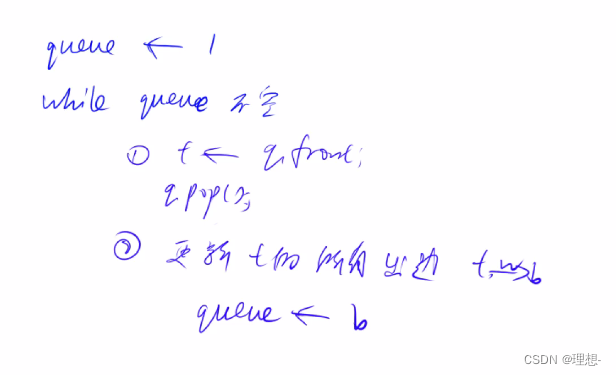 queue ← 1
while queue 不空
① t ← q.front;
q.pop();
② 更新t的所有出边 t, w→b
queue ← b
CSDN @理想-